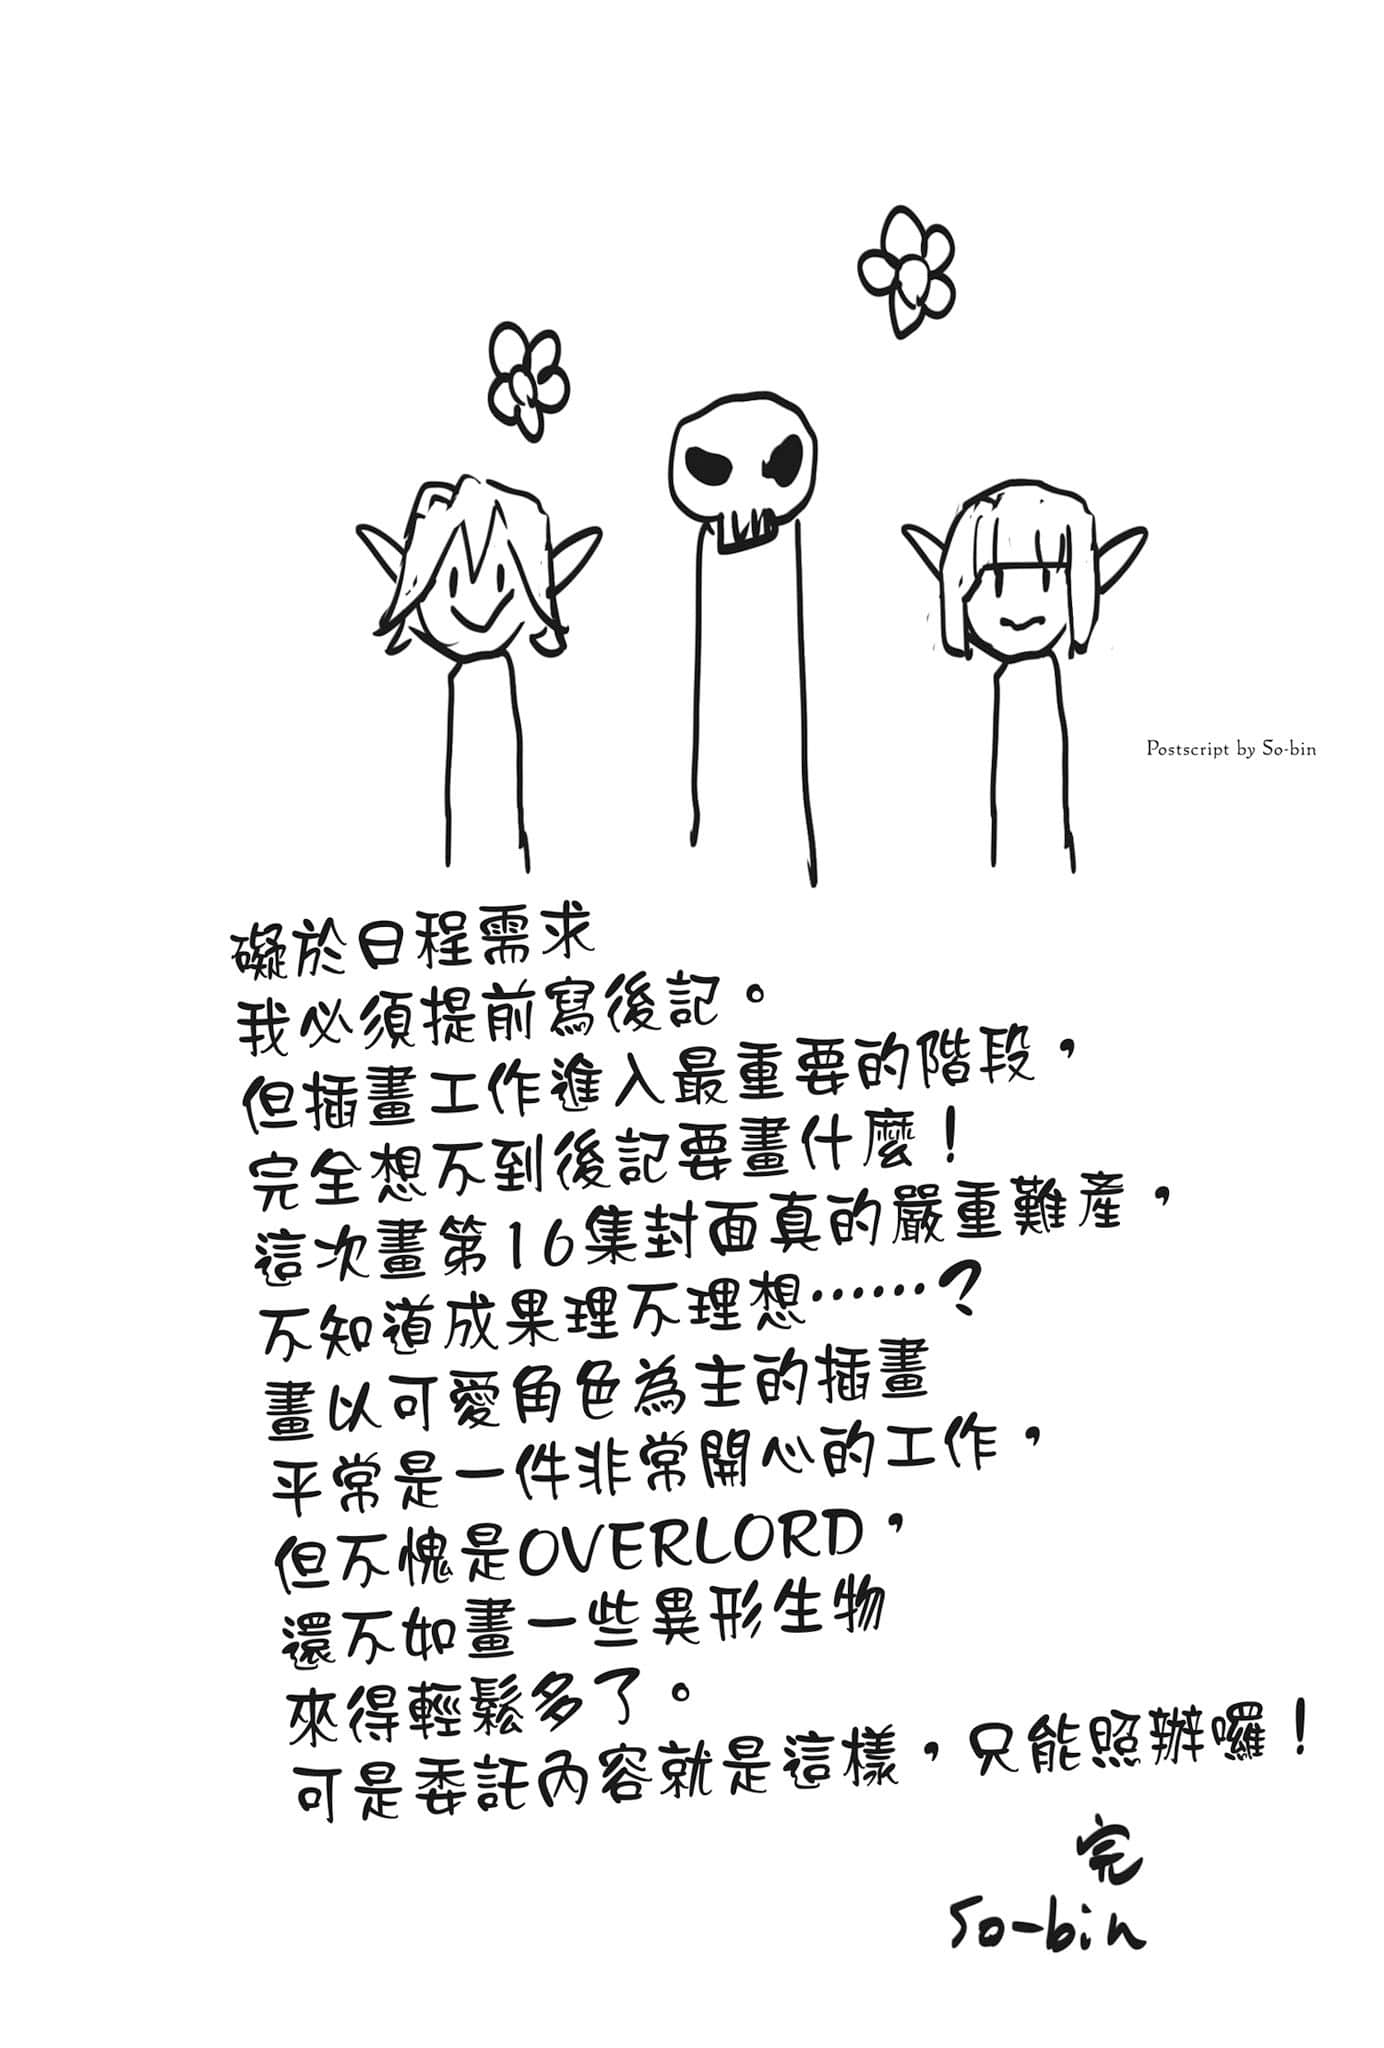 Postscript by So-bin
礙於日程需求
我必須提前寫後記。
但插畫工作進入最重要的階段，
完全想不到後記要畫什麼！
這次畫第16集封面真的嚴重難產，
不知道成果理不理想……？
畫以可愛角色為主的插畫
平常是一件非常開心的工作，
但不愧是OVERLORD，
還不如畫一些異形生物
來得輕鬆多了。
可是委託內容就是這樣，只能照辦囉！
完
so-bin